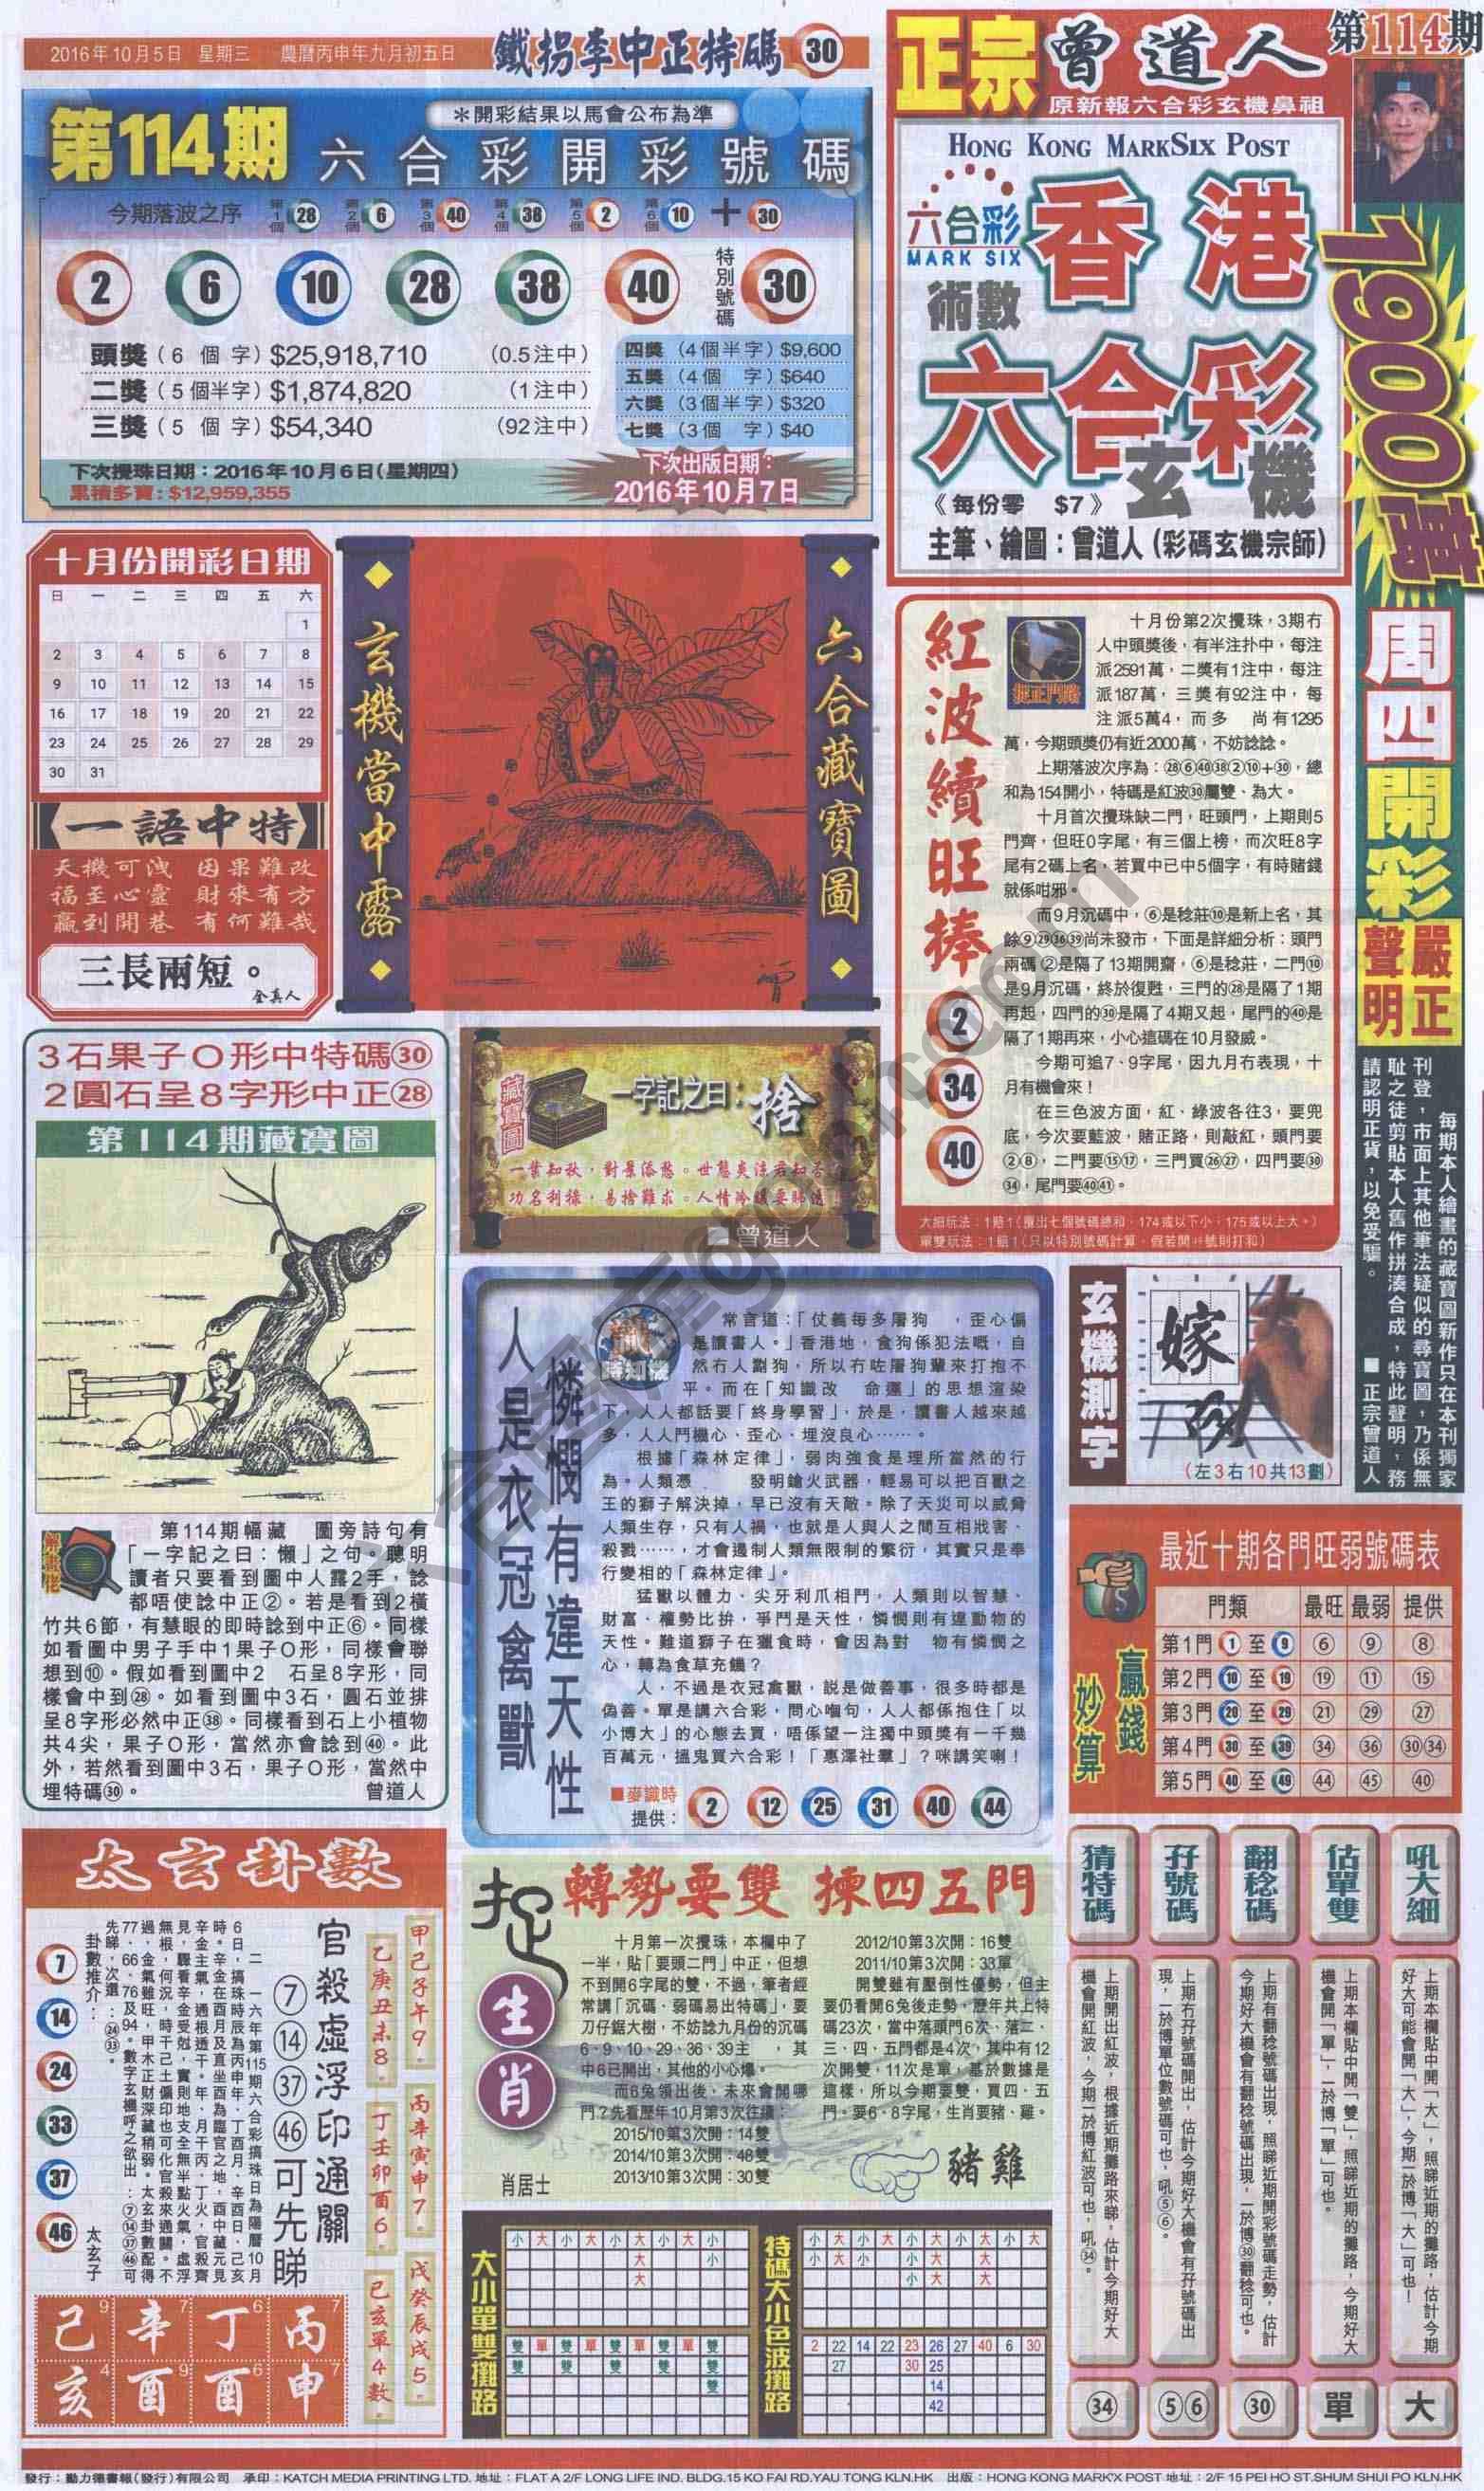 2016年10月5日 星期三 農曆丙申年九月初五日
鐵拐李中正特碼 30
第114期
＊開彩結果以馬會公布為準
六合彩開彩號碼
今期落波之序 第1個 28 第2個 6 第3個 40 第4個 38 第5個 2 第6個 10 ＋ 30
2 6 10 28 38 40 特別號碼 30
頭獎（6 個 字）$25,918,710 (0.5注中)
二獎（5個半字）$1,874,820 (1注中)
三獎（5 個 字）$54,340 (92注中)
四獎（4個半字）$9,600
五獎（4個 字）$640
六獎（3個半字）$320
七獎（3個 字）$40
下次攪珠日期：2016年10月6日(星期四)
累積多寶：$12,959,355
下次出版日期：
2016年10月7日
正宗曾道人
第114期
原新報六合彩玄機鼻祖
HONG KONG MARKSIX POST
六合彩
MARK SIX
香港
術數
六合彩
玄機
《每份零 $7》
主筆、繪圖：曾道人（彩碼玄機宗師）
1900萬
周四開彩
嚴正聲明
每期本人繪畫的藏寶圖新作只在本刊獨家
刊登，市面上其他筆法疑似的尋寶圖，乃係無
耻之徒剪貼本人舊作拼湊合成，特此聲明，務
請認明正貨，以免受騙。
■正宗曾道人
十月份開彩日期
日 一 二 三 四 五 六
1
2 3 4 5 6 7 8
9 10 11 12 13 14 15
16 17 18 19 20 21 22
23 24 25 26 27 28 29
30 31
一語中特
天機可洩 因果難改
福至心靈 財來有方
贏到開巷 有何難哉
三長兩短。
全真人
玄機當中露
六合藏寶圖
紅波續旺捧
2
34
40
捉正門路
十月份第2次攪珠，3期冇
人中頭獎後，有半注扑中，每注
派2591萬，二獎有1注中，每注
派187萬，三獎有92注中，每
注派5萬4，而多 尚有1295
萬，今期頭獎仍有近2000萬，不妨諗諗。
上期落波次序為：㉘⑥㊵㊳②⑩+㉚，總
和為154開小，特碼是紅波㉚屬雙、為大。
十月首次攪珠缺二門，旺頭門，上期則5
門齊，但旺0字尾，有三個上榜，而次旺8字
尾有2碼上名，若買中已中5個字，有時賭錢
就係咁邪。
而9月沉碼中，⑥是稔莊⑩是新上名，其
餘⑨㉙㊱㊴尚未發市，下面是詳細分析：頭門
兩碼②是隔了13期開齋，⑥是稔莊，二門⑩
是9月沉碼，終於復甦，三門的㉘是隔了1期
再起，四門的㉚是隔了4期又起，尾門的㊵是
隔了1期再來，小心這碼在10月發威。
今期可追7、9字尾，因九月冇表現，十
月有機會來！
在三色波方面，紅、綠波各往3，要兜
底，今次要藍波，賭正路，則敲紅，頭門要
②⑧，二門要⑮⑰，三門買㉖㉗，四門要㉚
㉞，尾門要㊵㊶。
大細玩法：1賠1（攪出七個號碼總和，174或以下小，175或以上大。）
單雙玩法：1賠1（只以特別號碼計算，假若開 號則打和）
3石果子O形中特碼㉚
2圓石呈8字形中正㉘
第114期藏寶圖
第114期幅藏 圖旁詩句有
「一字記之曰：懶」之句。聰明
讀者只要看到圖中人露2手，諗
都唔使諗中正②。若是看到2橫
竹共6節，有慧眼的即時諗到中正⑥。同樣
如看圖中男子手中1果子O形，同樣會聯
想到⑩。假如看到圖中2 石呈8字形，同
樣會中到㉘。如看到圖中3石，圓石並排
呈8字形必然中正㊳。同樣看到石上小植物
共4尖，果子O形，當然亦會諗到㊵。此
外，若然看到圖中3石，果子O形，當然中
埋特碼㉚。 曾道人
藏寶圖
一字記之曰：捨
一葉知秋，對景添愁。世態炎涼君知否？
功名利祿，易捨難求。人情冷暖要睇透！
■曾道人
憐憫有違天性
人是衣冠禽獸
識時知機
常言道：「仗義每多屠狗 ，歪心偏
是讀書人。」香港地，食狗係犯法嘅，自
然冇人劏狗，所以冇咗屠狗輩來打抱不
平。而在「知識改 命運」的思想渲染
下，人人都話要「終身學習」，於是，讀書人越來越
多，人人鬥機心、歪心，埋沒良心……。
根據「森林定律」，弱肉強食是理所當然的行
為。人類憑 發明鎗火武器，輕易可以把百獸之
王的獅子解決掉，早已沒有天敵。除了天災可以威脅
人類生存，只有人禍，也就是人與人之間互相戕害、
殺戮……，才會遏制人類無限制的繁衍，其實只是奉
行變相的「森林定律」。
猛獸以體力、尖牙利爪相鬥，人類則以智慧、
財富、權勢比拚，爭鬥是天性，憐憫則有違動物的
天性。難道獅子在獵食時，會因為對 物有憐憫之
心，轉為食草充饑？
人，不過是衣冠禽獸，説是做善事，很多時都是
偽善。單是講六合彩，問心嗰句，人人都係抱住「以
小博大」的心態去買，唔係望一注獨中頭獎有一千幾
百萬元，搵鬼買六合彩！「惠澤社羣」？咪講笑喇！
■麥識時
提供： 2 12 25 31 40 44
玄機測字
嫁
(左3右10共13劃)
最近十期各門旺弱號碼表
贏錢妙算
門類 最旺 最弱 提供
第1門 1 至 9 ⑥ ⑨ ⑧
第2門 10 至 19 ⑲ ⑪ ⑮
第3門 20 至 29 ㉑ ㉙ ㉗
第4門 30 至 39 ㉞ ㊱ ㉚㉞
第5門 40 至 49 ㊹ ㊺ ㊵
太玄卦數
甲己子午9。
乙庚丑未8。
丙辛寅申7。
丁壬卯酉6。
戊癸辰戌5。
巳亥單4數。
官殺虛浮印通關
⑦⑭㊲㊻可先睇
二 一六年第115期六合彩搞珠日為陽曆10月
6日，搞珠時辰為丙申年．丁酉月．辛酉日．己亥
時。辛金在酉月及直坐酉為臨官之地，酉中藏元見
辛金主氣，通根透干。年、月干丙、丁火，官殺齊
見，驟看辛金受尅，實則地支全無半點火氣，虛浮
無根，何況，時干己土偏印也可化官殺來通關。不
過，金氣雖旺，甲木正財深藏稍弱。太玄卦數配得
77、66、76及94。數字玄機呼之欲出：⑦⑭㊲㊻可
先睇，次選：㉔㉝。
卦數推介：
7
14
24
33
37
46
太玄子
己9 辛7 丁6 丙7
亥4 酉9 酉6 申7
捉生肖
轉勢要雙 揀四五門
十月第一次攪珠，本欄中了
一半，貼「要頭二門」中正，但想
不到開6字尾的雙，不過，筆者經
常講「沉碼、弱碼易出特碼」，要
刀仔鋸大樹，不妨諗九月份的沉碼
6、9、10、29、36、39主 ，其
中6已開出，其他的小心爆。
而6兔領出後，未來會開哪
門？先看歷年10月第3次往績：
2015/10第3次開：14雙
2014/10第3次開：48雙
2013/10第3次開：30雙
2012/10第3次開：16雙
2011/10第3次開：33單
開雙雖有壓倒性優勢，但主
要仍看開6兔後走勢，歷年共上特
碼23次，當中落頭門6次、落二、
三、四、五門都是4次，其中有12
次開雙，11次是單，基於數據是
這樣，所以今期要雙，買四、五
門。要6、8字尾，生肖要豬、雞。
肖居士
豬 雞
大小單雙攤路
小 大 小 大 小 大 小 大 小
大 小
大
雙 單 雙 單 雙 單 雙 單 雙
雙 雙 雙 雙 雙
雙
特碼大小色波攤路
小 大 小 大 小 大 小 大 小 大
小 大 小 小 大 大
小 大 大
2 22 14 22 23 26 27 40 6 30
27 30 25
14
42
猜特碼
上期開出紅波，根據近期攤路來睇，估計今期好大
機會開紅波，今期一於博紅波可也，吼㉞。
㉞
孖號碼
上期冇孖號碼開出，估計今期好大機會有孖號碼出
現，一於博單位數號碼可也，吼⑤⑥。
⑤⑥
翻稔碼
上期有翻稔號碼出現，照睇近期開彩號碼走勢，估計
今期好大機會有翻稔號碼出現，一於博㉚翻稔可也。
㉚
估單雙
上期本欄貼中開「雙」，照睇近期的攤路，今期好大
機會開「單」，一於博「單」可也。
單
吼大細
上期本欄貼中開「大」，照睇近期的攤路，估計今期
好大可能會開「大」，今期一於博「大」可也！
大
發行：動力德書報(發行)有限公司 承印：KATCH MEDIA PRINTING LTD. 地址：FLAT A 2/F LONG LIFE IND. BLDG.15 KO FAI RD.YAU TONG KLN.HK 出版：HONG KONG MARK'X POST 地址：2/F 15 PEI HO ST.SHUM SHUI PO KLN.HK